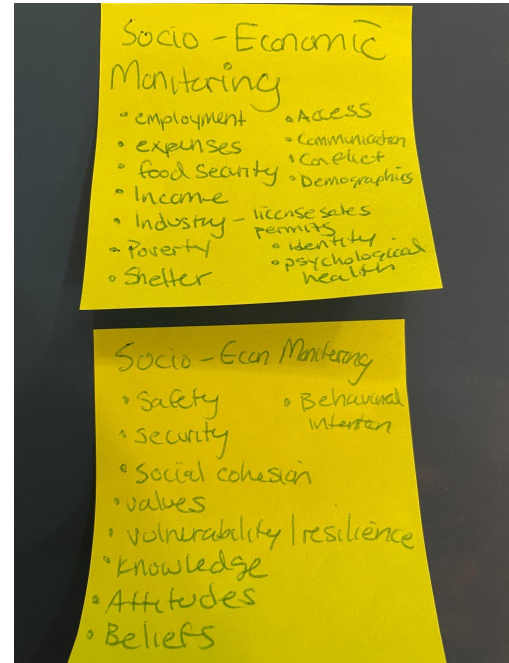 Socio-Economic
Monitoring
• employment
• expenses
• food security
• Income
• Industry - license sales
permits
• Poverty
• Shelter
• Access
• Communication
• Conflict
• Demographics
• identity
• psychological
health
Socio-Econ Monitoring
• Safety
• Security
• Social cohesion
• values
• vulnerability/resilience
• Knowledge
• Attitudes
• Beliefs
• Behavioral
intention